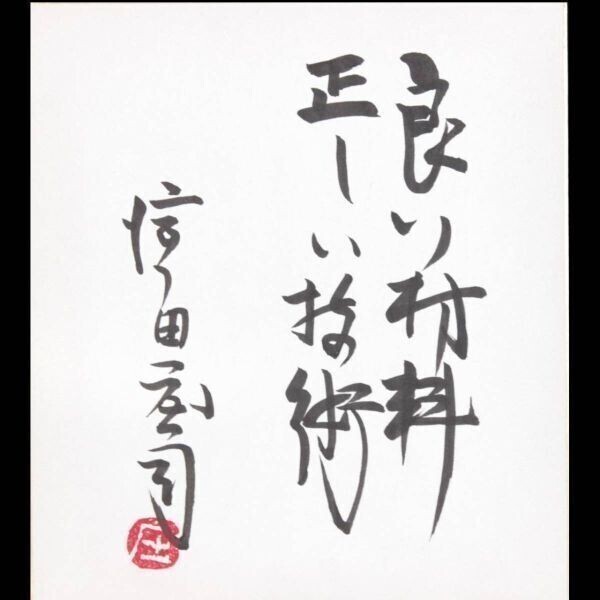 良い材料
正しい技術
田司